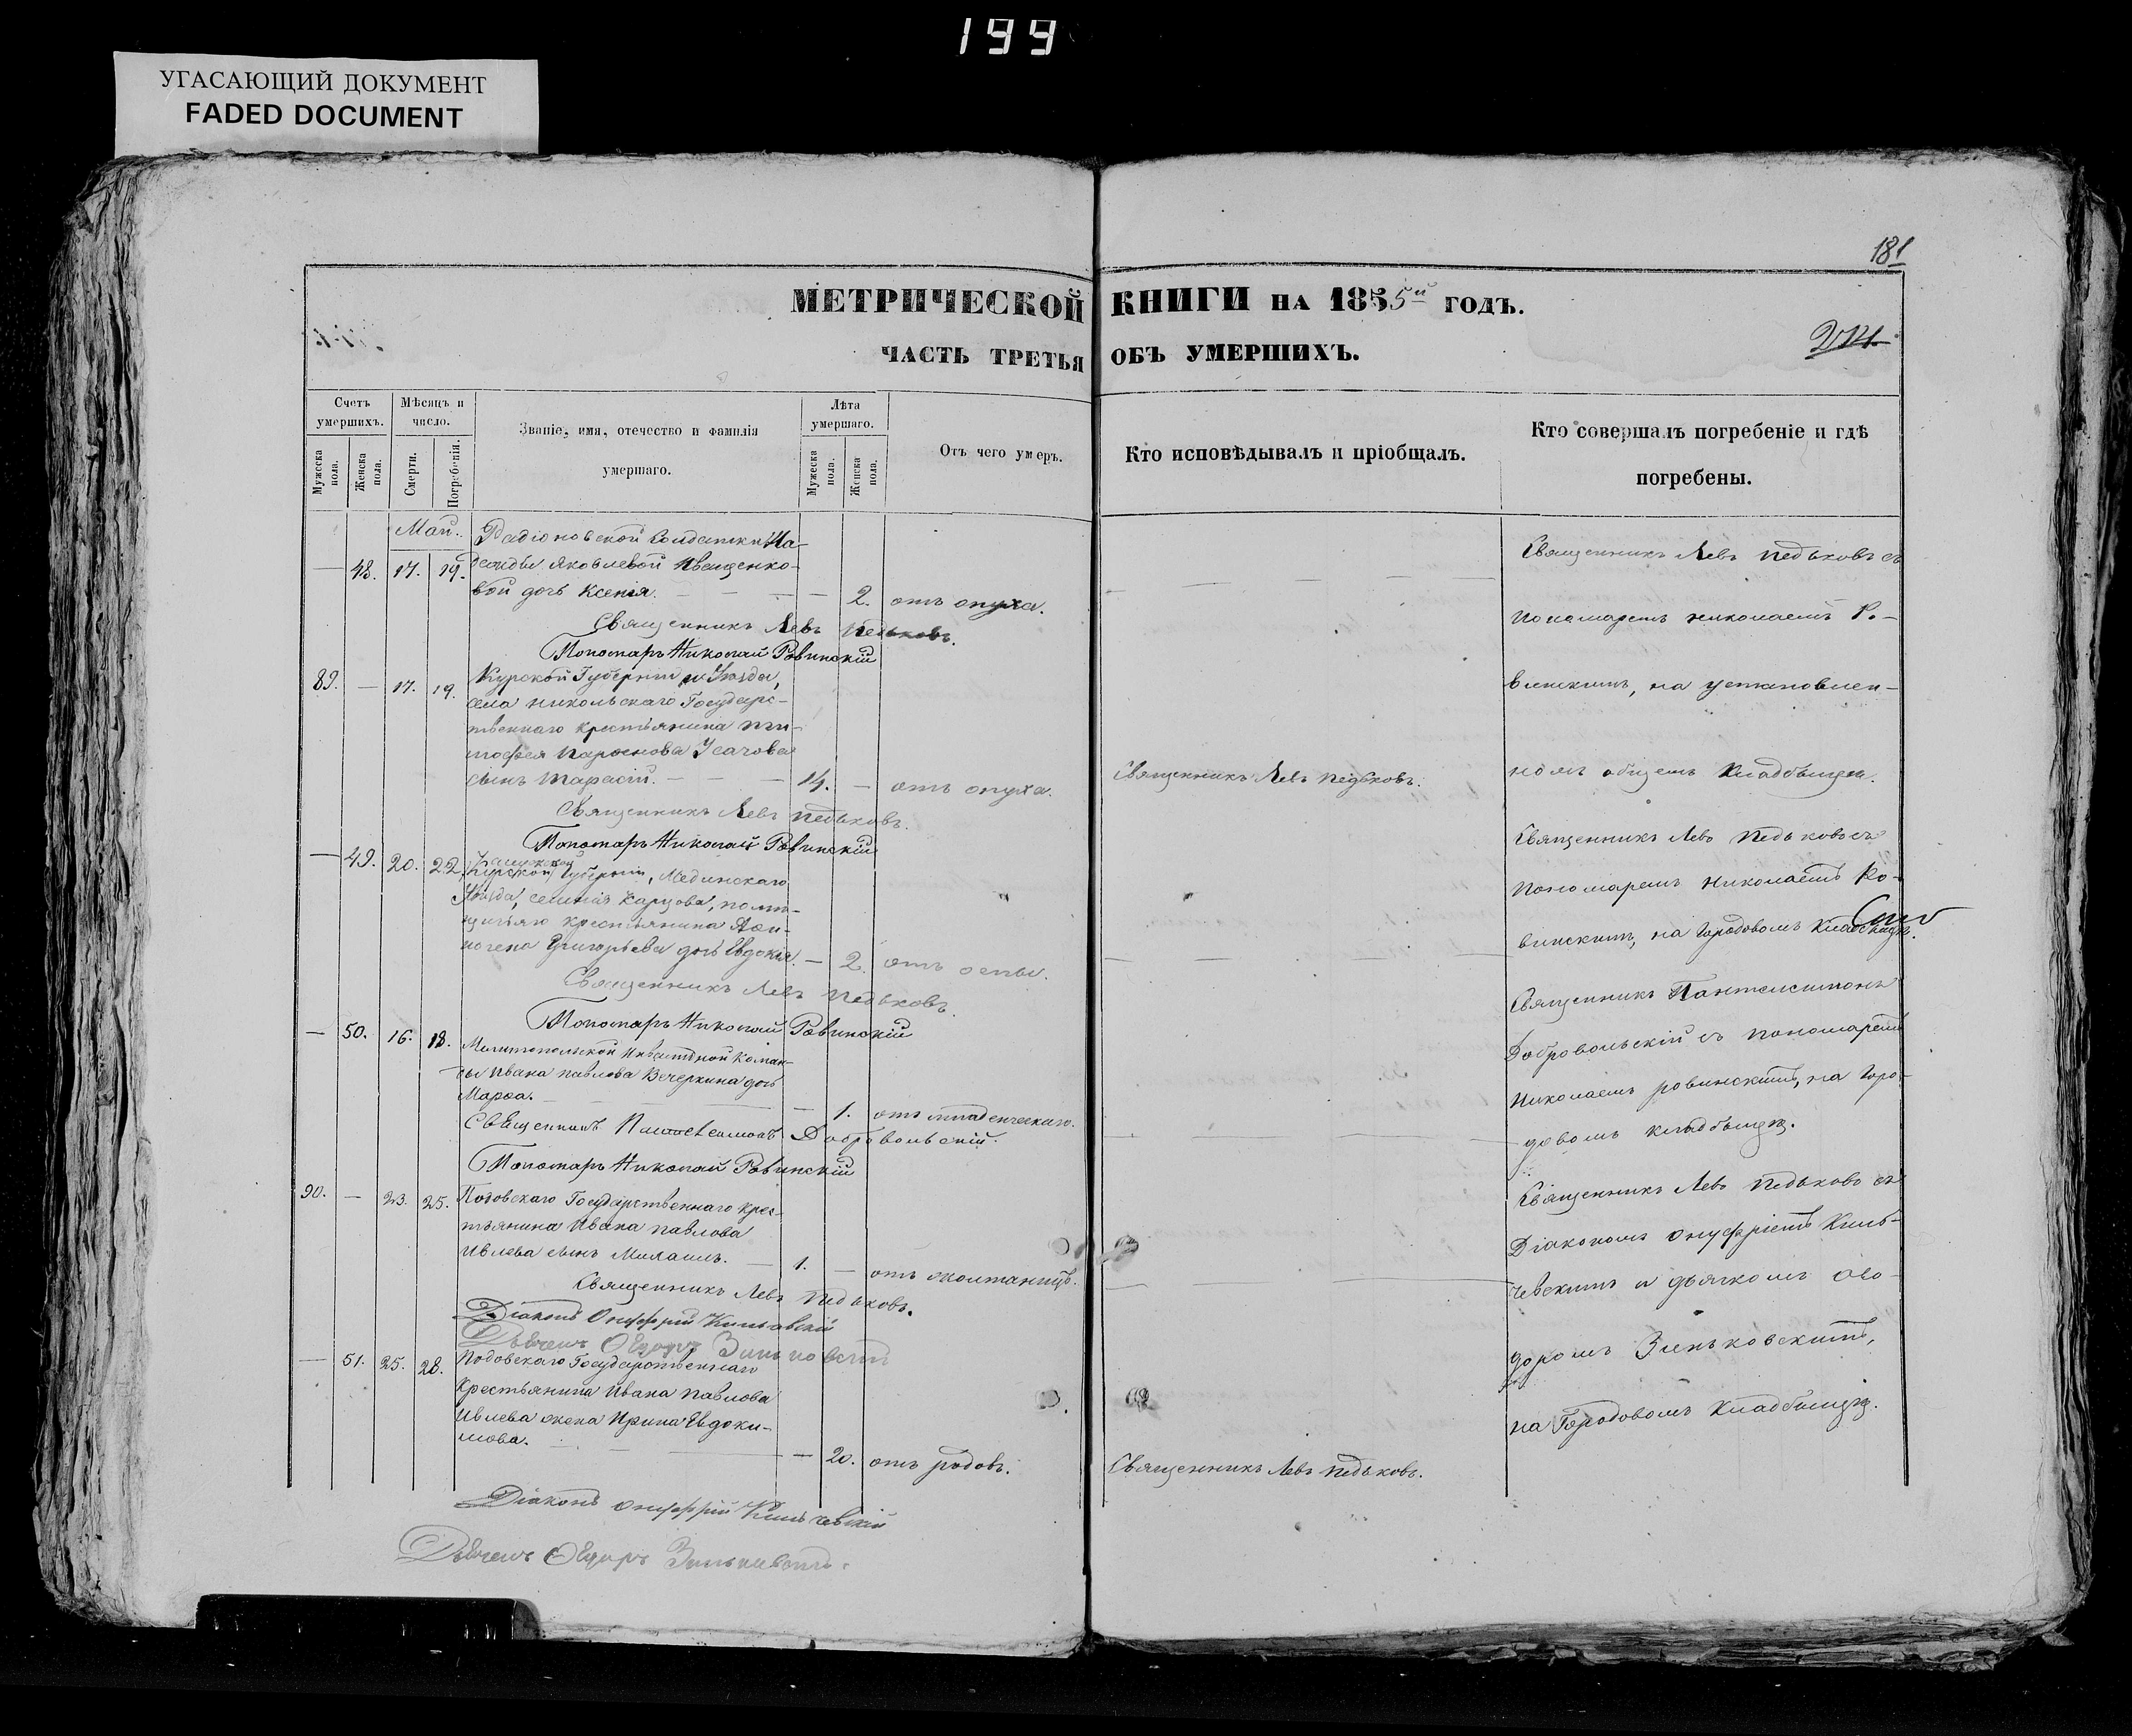 199
УГАСАЮЩИЙ ДОКУМЕНТ
FADED DOCUMENT
181
МЕТРИЧЕСКОЙ КНИГИ НА 1855й ГОДЪ.
214.
ЧАСТЬ ТРЕТЬЯ ОБЪ УМЕРШИХЪ.
Счетъ умершихъ.
Мужеска пола.
Женска пола.
Мѣсяцъ и число.
Смерти.
Погребенія.
Званіе, имя, отечество и фамилія умершаго.
Лѣта умершаго.
Мужеска пола.
Женска пола.
Отъ чего умеръ.
Кто исповѣдывалъ и пріобщалъ.
Кто совершалъ погребеніе и гдѣ погребены.
Май. Радіоновской солдатки На-
— 48. 17. 19. дежды Яковлевой Иващенко-
вой дочь Ксенія. — 2. отъ опуха.
Священникъ Левъ Педьковъ.
Пономарь Николай Ровинскій
Священникъ Левъ Педьковъ съ
Пономаремъ Николаемъ Ро-
винскимъ, на установлен-
номъ общемъ Кладбищѣ.
89. — 17. 19. Курской Губерніи и Уѣзда,
села Никольскаго Государс-
твеннаго крестьянина Ти-
мофея Парѳенова Усачова
сынъ Тарасій. — 14. — отъ опуха.
Священникъ Левъ Педьковъ.
Священникъ Левъ Педьковъ.
Пономарь Николай Ровинскій
— 49. 20. 22. Калужской
Курской Губерніи, Медынскаго
Уѣзда, селенія Карцова, помѣ-
щичьяго крестьянина
Григорьева дочь Евдокія. — 2. отъ оспы.
Священникъ Левъ Педьковъ.
Пономарь Николай Ровинскій
Священникъ Левъ Педьковъ съ
Пономаремъ Николаемъ Ро-
винскимъ, на Городовомъ Кладбищѣ.
— 50. 16. 18. Мелитопольской Инвалидной Коман-
ды Ивана Павлова Вечеркина дочь
Марѳа. — 1. отъ младенческаго.
Священникъ Пантелеимонъ Добровольскій.
Пономарь Николай Ровинскій
Священникъ Пантелеимонъ
Добровольскій съ Пономаремъ
Николаемъ Ровинскимъ, на Горо-
довомъ кладбищѣ.
90. — 23. 25. Подовскаго Государственнаго крес-
тьянина Ивана Павлова
Ивлева сынъ Михаилъ. — 1. —
Священникъ Левъ Педьковъ.
Діаконъ Онуфрій Кильчевскій
Дьячекъ Ѳедоръ Зиньковскій
Священникъ Левъ Педьковъ съ
Діакономъ Онуфріемъ Киль-
чевскимъ и дьячкомъ Ѳео-
доромъ Зиньковскимъ,
на Городовомъ Кладбищѣ.
— 51. 25. 28. Подовскаго Государственнаго
Крестьянина Ивана Павлова
Ивлева жена Ирина Евдоки-
мова. — 20. отъ родовъ.
Священникъ Левъ Педьковъ.
Діаконъ Онуфрій Кильчевскій
Дьячекъ Ѳедоръ Зиньковскій.